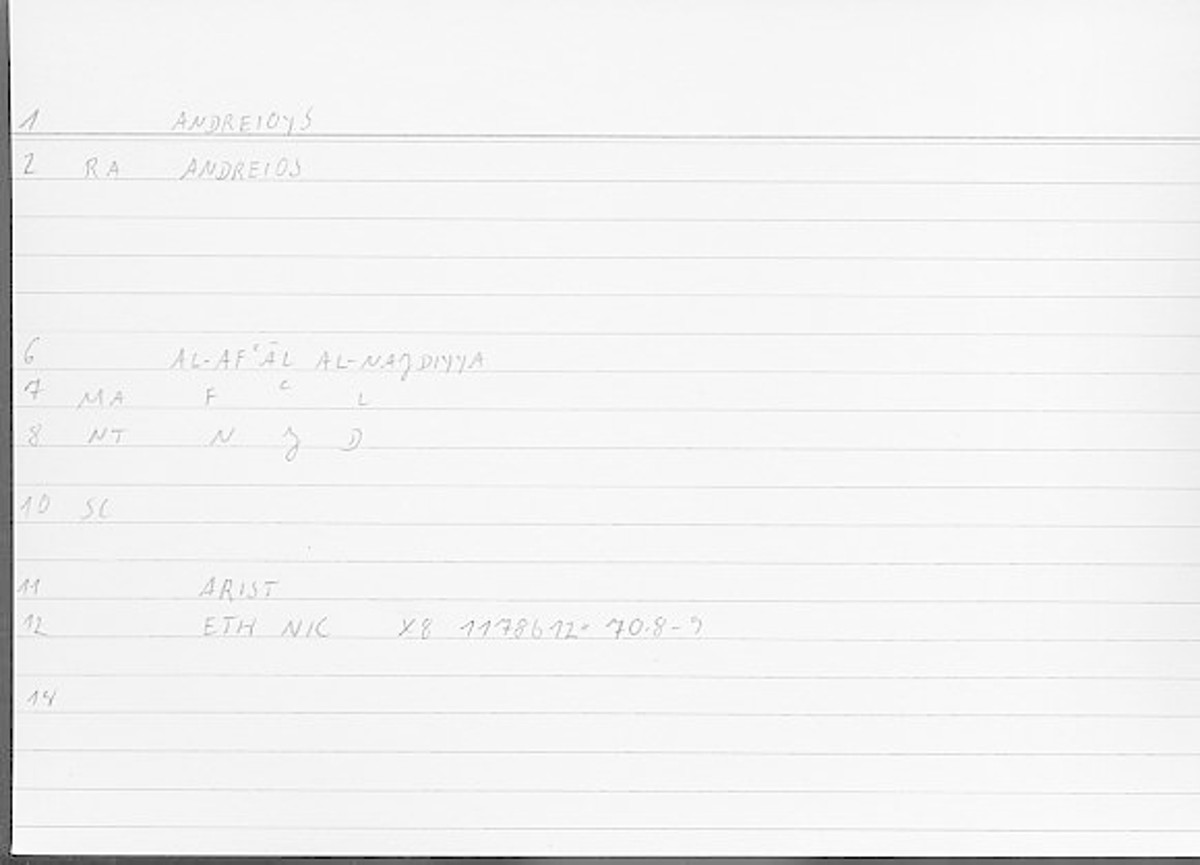 1 ANDREIOYS
2 RA ANDREIOS
6 AL-AFʿĀL AL-NAJDIYYA
7 MA F ʿ L
8 NT N J D
10 SC
11 ARIST
12 ETH NIC X8 1178b12: 70.8-9
14